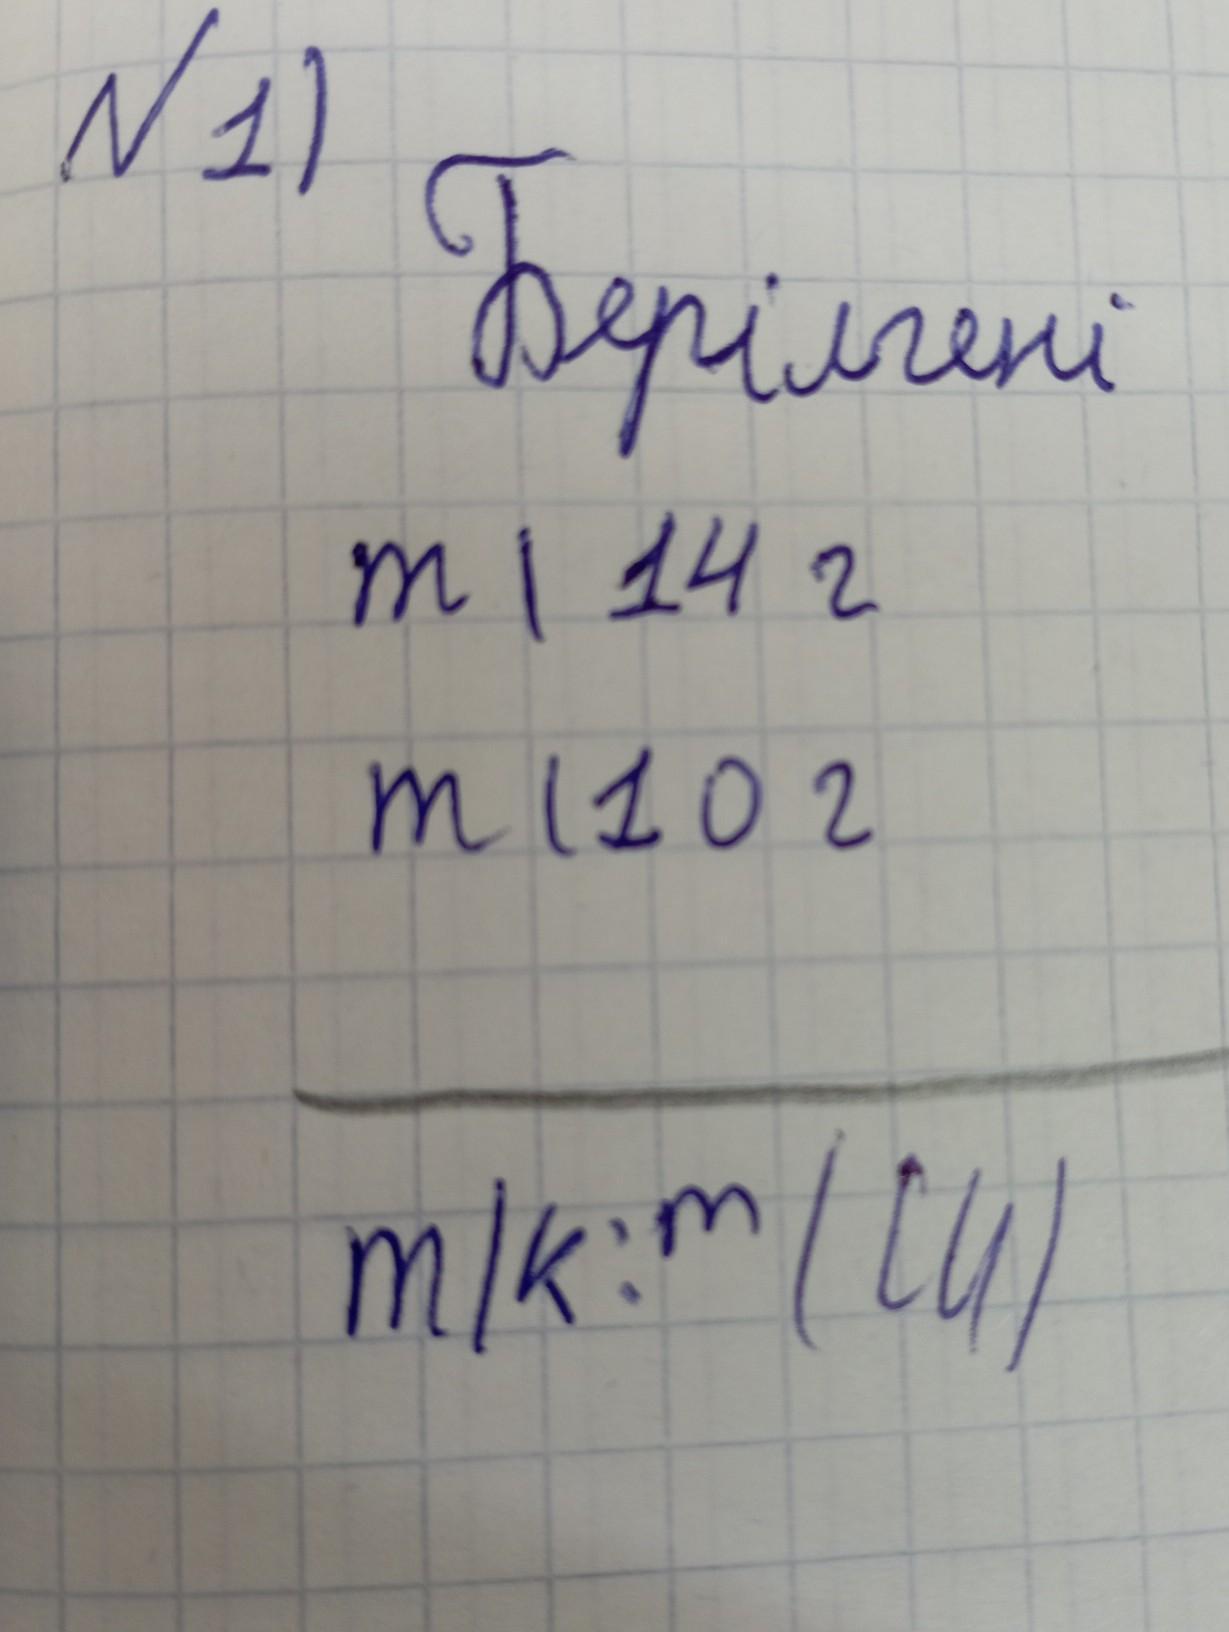 №1)
Берілгені
m | 14 г
m | 10 г
m/к: m (Cu)